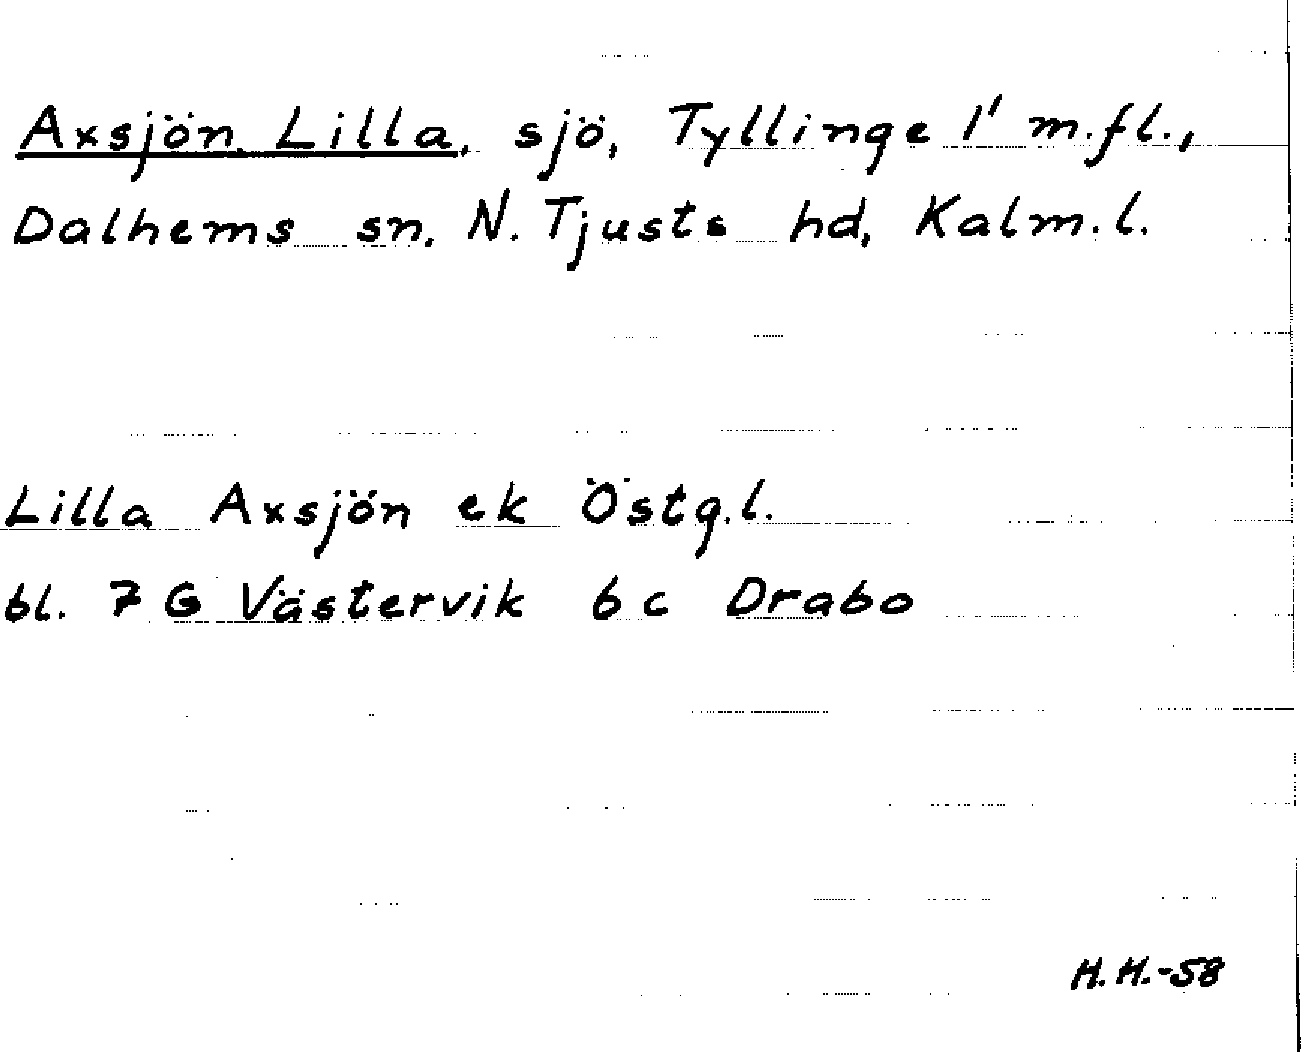 Axsjön, Lilla, sjö, Tyllinge 1' m.fl.,
Dalhems sn, N. Tjusts hd, Kalm.l.
Lilla Axsjön ek Östg.l.
bl. 7 G Västervik 6 c Drabo
H.H.-58